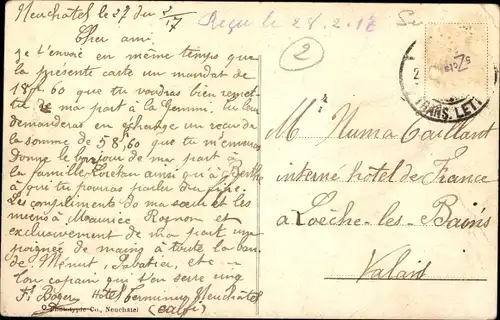 Neuchâtel le 27 du 2/17
Reçu le 28.2.17
2
Cher ami.
je t'envoie en même temps que
la présente carte un mandat de
60 que tu voudras bien remet
de ma part à la Gemmi. tu leur
demanderas en échange un reçu de
la somme de 58,60 que tu m'enverras
Donne le bonjour de ma part à
la famille Loretan ainsi qu'à Berthe
à qui tu pourras parler du
Les compliments de ma sœur et les
miens à Maurice Rognon et
exclusivement de ma part une
poignée de mains à toute la ban
de Menut, Sabatier, etc -
Ton copain qui t'en serre une
F. Böger Hôtel Terminus Neuchâtel
(Calfi)
Phototypie Co., Neuchâtel
TRANS. LETT
M Numa Caillant
interne hôtel de France
à Loèche-les-Bains
Valais